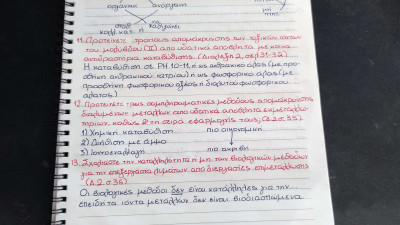 οργανικά ανόργανη
σταθ. κολλ. κατ. Η
11. Προτείνετε τρόπους απομάκρυνσης των τοξικών ιόντων
του μολύβδου (ΙΙ) από υδατικά απόβλητα με κοινά
αντιδραστήρια κατακρήμνισης. (Διάλεξη 2, σελ. 31-32)
Η κατακρήμνιση σε PH 10-11, ή ως ανθρακικό άλας (με προσ-
θήκη ανθρακικού νατρίου) ή ως φωσφορικό άλας (με
προσθήκη φωσφορικού οξέος ή διαλυτού φωσφορικού
άλατος)
12. Προτείνετε τρεις συμπληρωματικές μεθόδους απομάκρυνσης
διαλυμένων μετάλλων από υδατικά απόβλητα
καθώς &
τη σειρά εφαρμογής τους; (Δ.2 σ. 35)
1) Χημική κατακρήμνιση πιο οικονομική
2) Διήθιση με άμμο
3) Ιοντοεναλλαγή πιο ακριβή
13. Σχολιάστε την καταλληλότητα ή μη των βιολογικών μεθόδων
για την επεξεργασία λυμάτων από διεργασίες επιμετάλλωσης
(Δ.2 σ. 36)
Οι βιολογικές μέθοδοι δεν είναι κατάλληλες για την...
επειδή τα ιόντα μετάλλων δεν είναι βιοδιασπώμενα.